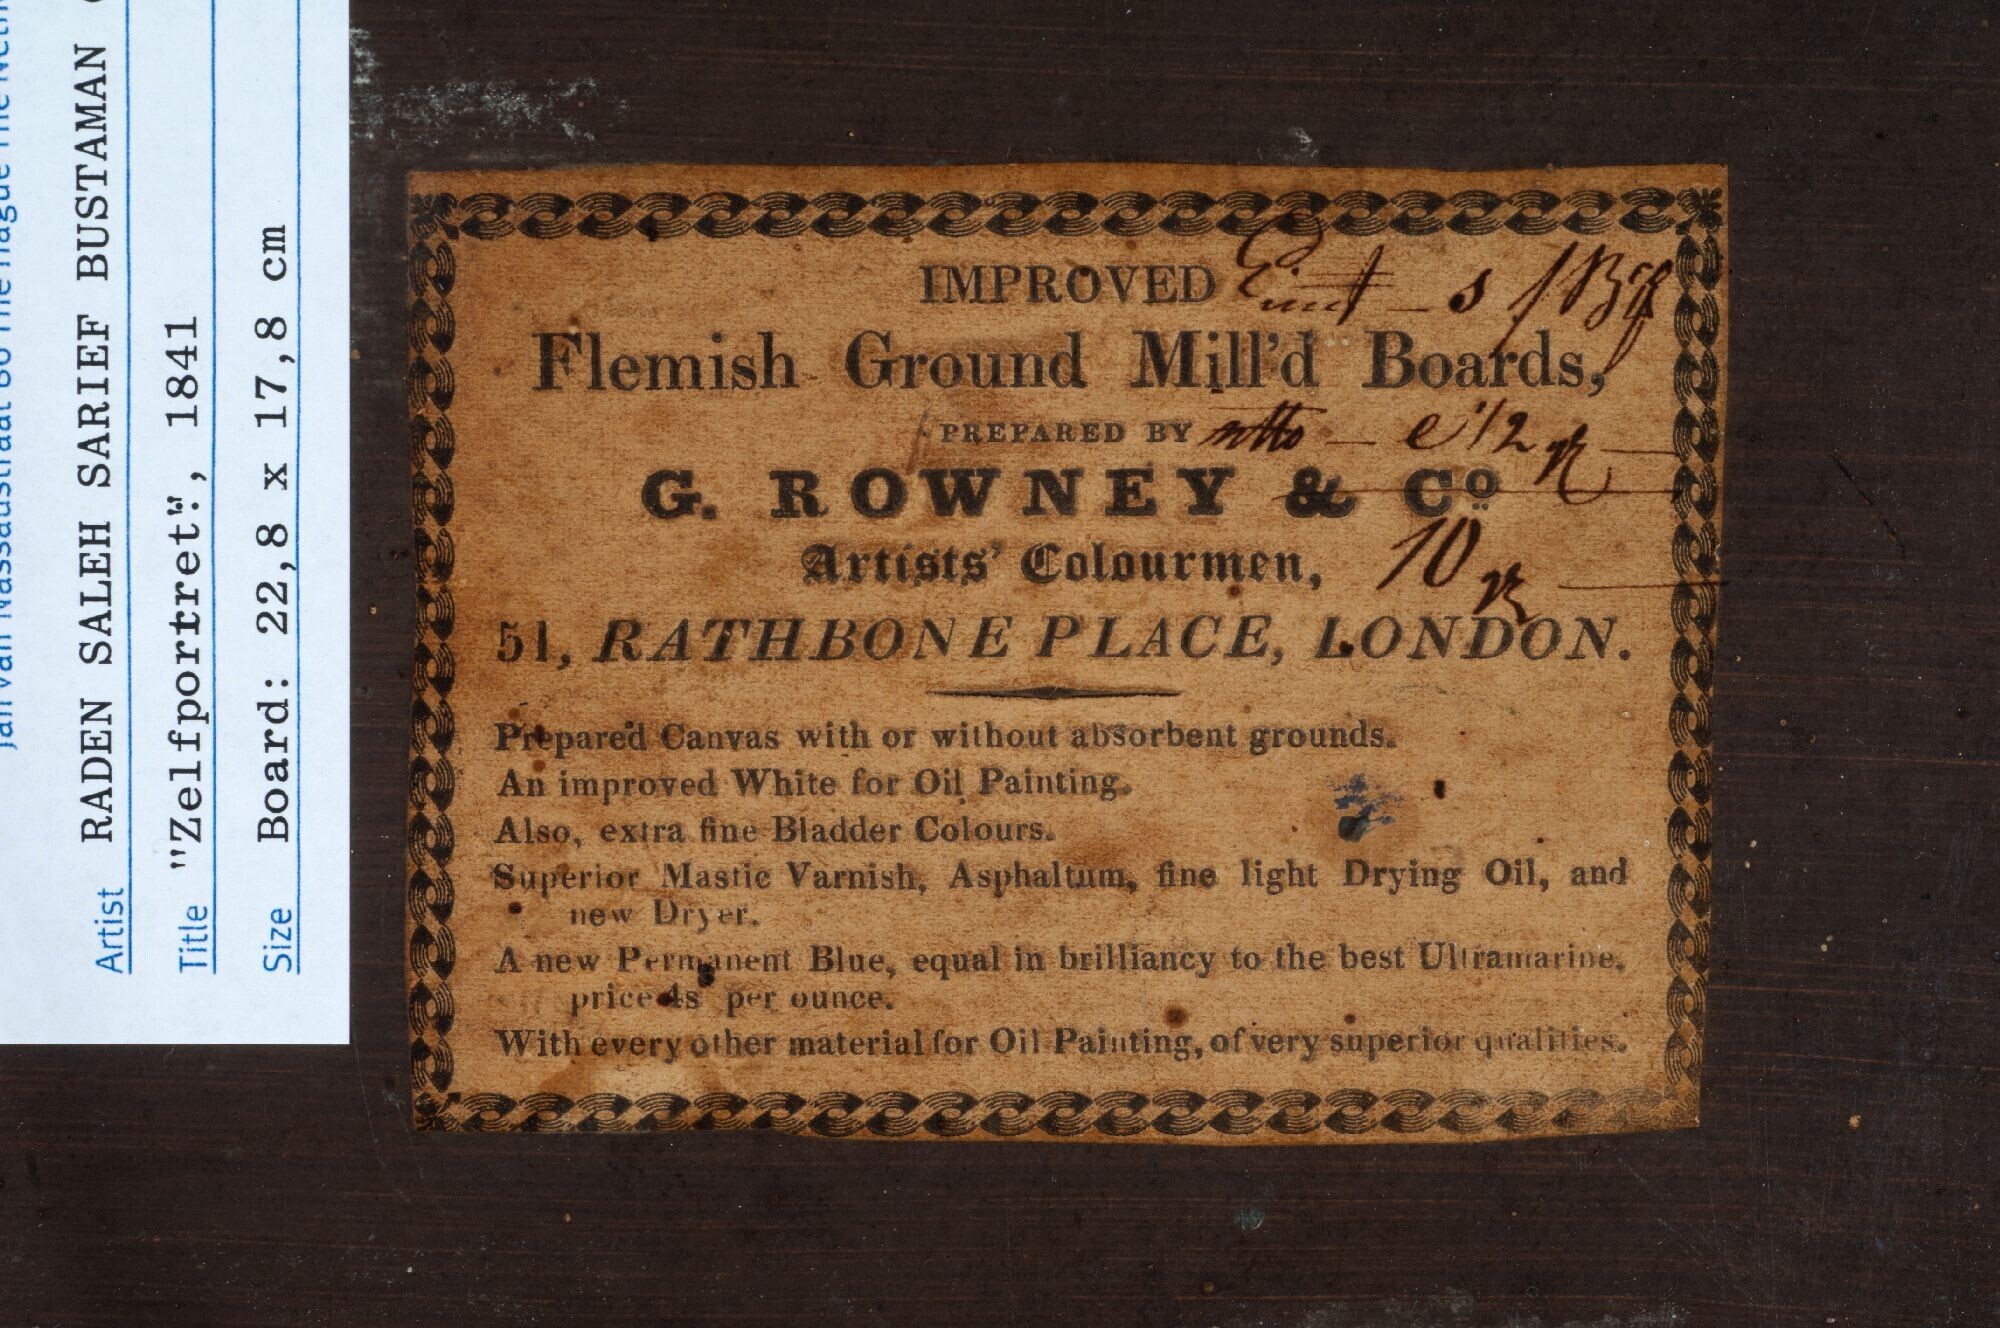 Artist RADEN SALEH SARIEF BUSTAMAN
Title "Zelfportret", 1841
Size Board: 22,8 x 17,8 cm
IMPROVED
Flemish Ground Mill'd Boards,
PREPARED BY
G. ROWNEY & Co
Artists' Colourmen,
10
51, RATHBONE PLACE, LONDON.
Prepared Canvas with or without absorbent grounds.
An improved White for Oil Painting.
Also, extra fine Bladder Colours.
Superior Mastic Varnish, Asphaltum, fine light Drying Oil, and
new Dryer.
A new Permanent Blue, equal in brilliancy to the best Ultramarine,
price 4s per ounce.
With every other material for Oil Painting, of very superior qualities.